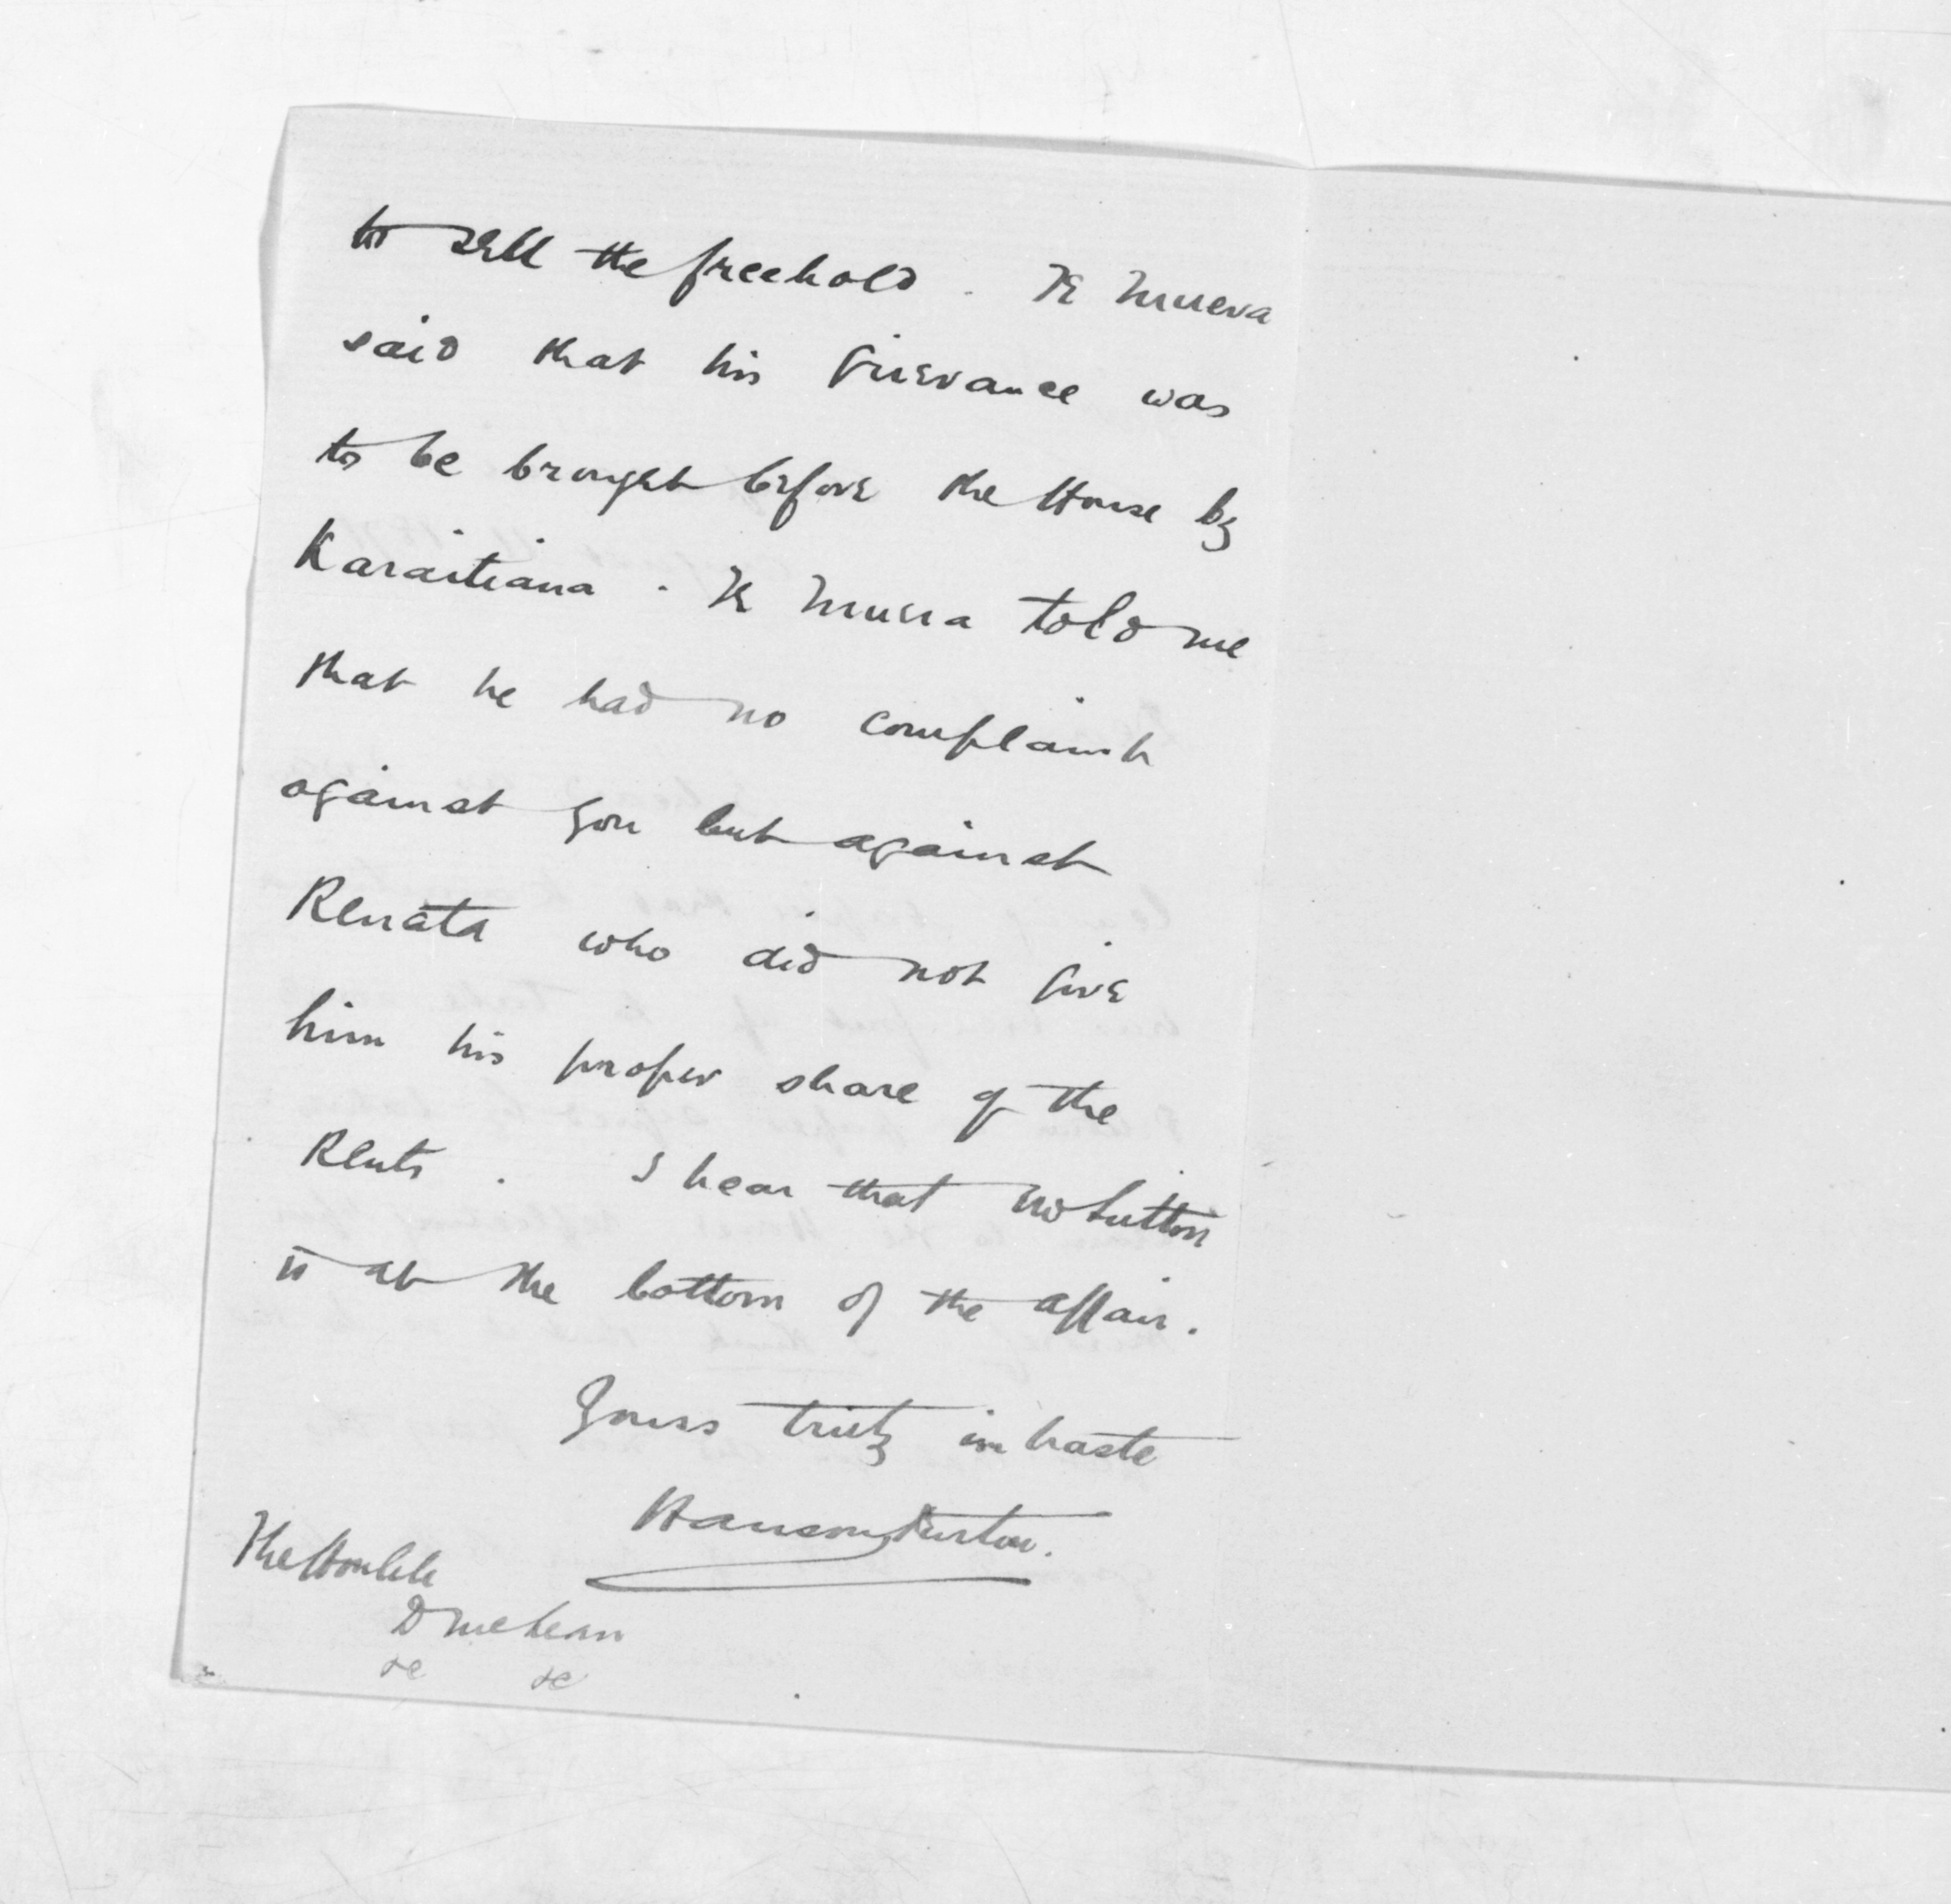 to sell the freehold. Te Muera
said that his Grievance was
to be brought before the House by
Karaitiana. Te Muera told me
that he had no complaint
against you but against
Renata who did not give
him his proper share of the
Rents. I hear that
is at the bottom of the affair.
Yours truly in haste
Hanson Turton.
The Honble
D McLean
&c &c